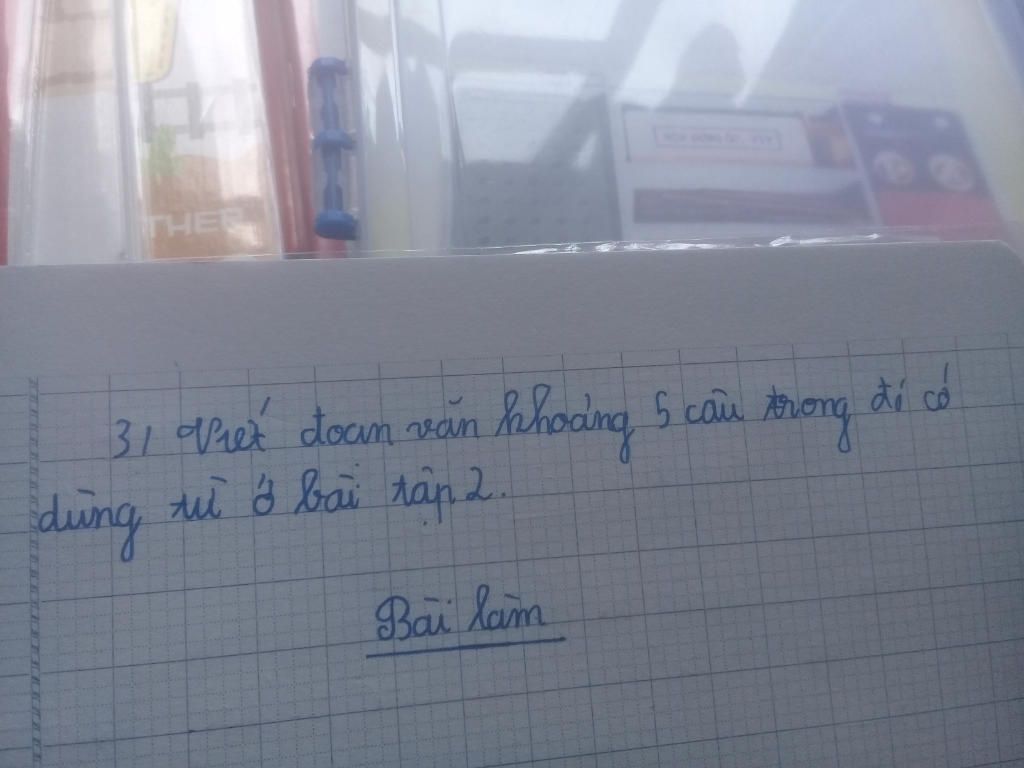 THER
3/ Viết đoạn văn khoảng 5 câu trong đó có
dùng từ ở bài tập 2.
Bài làm